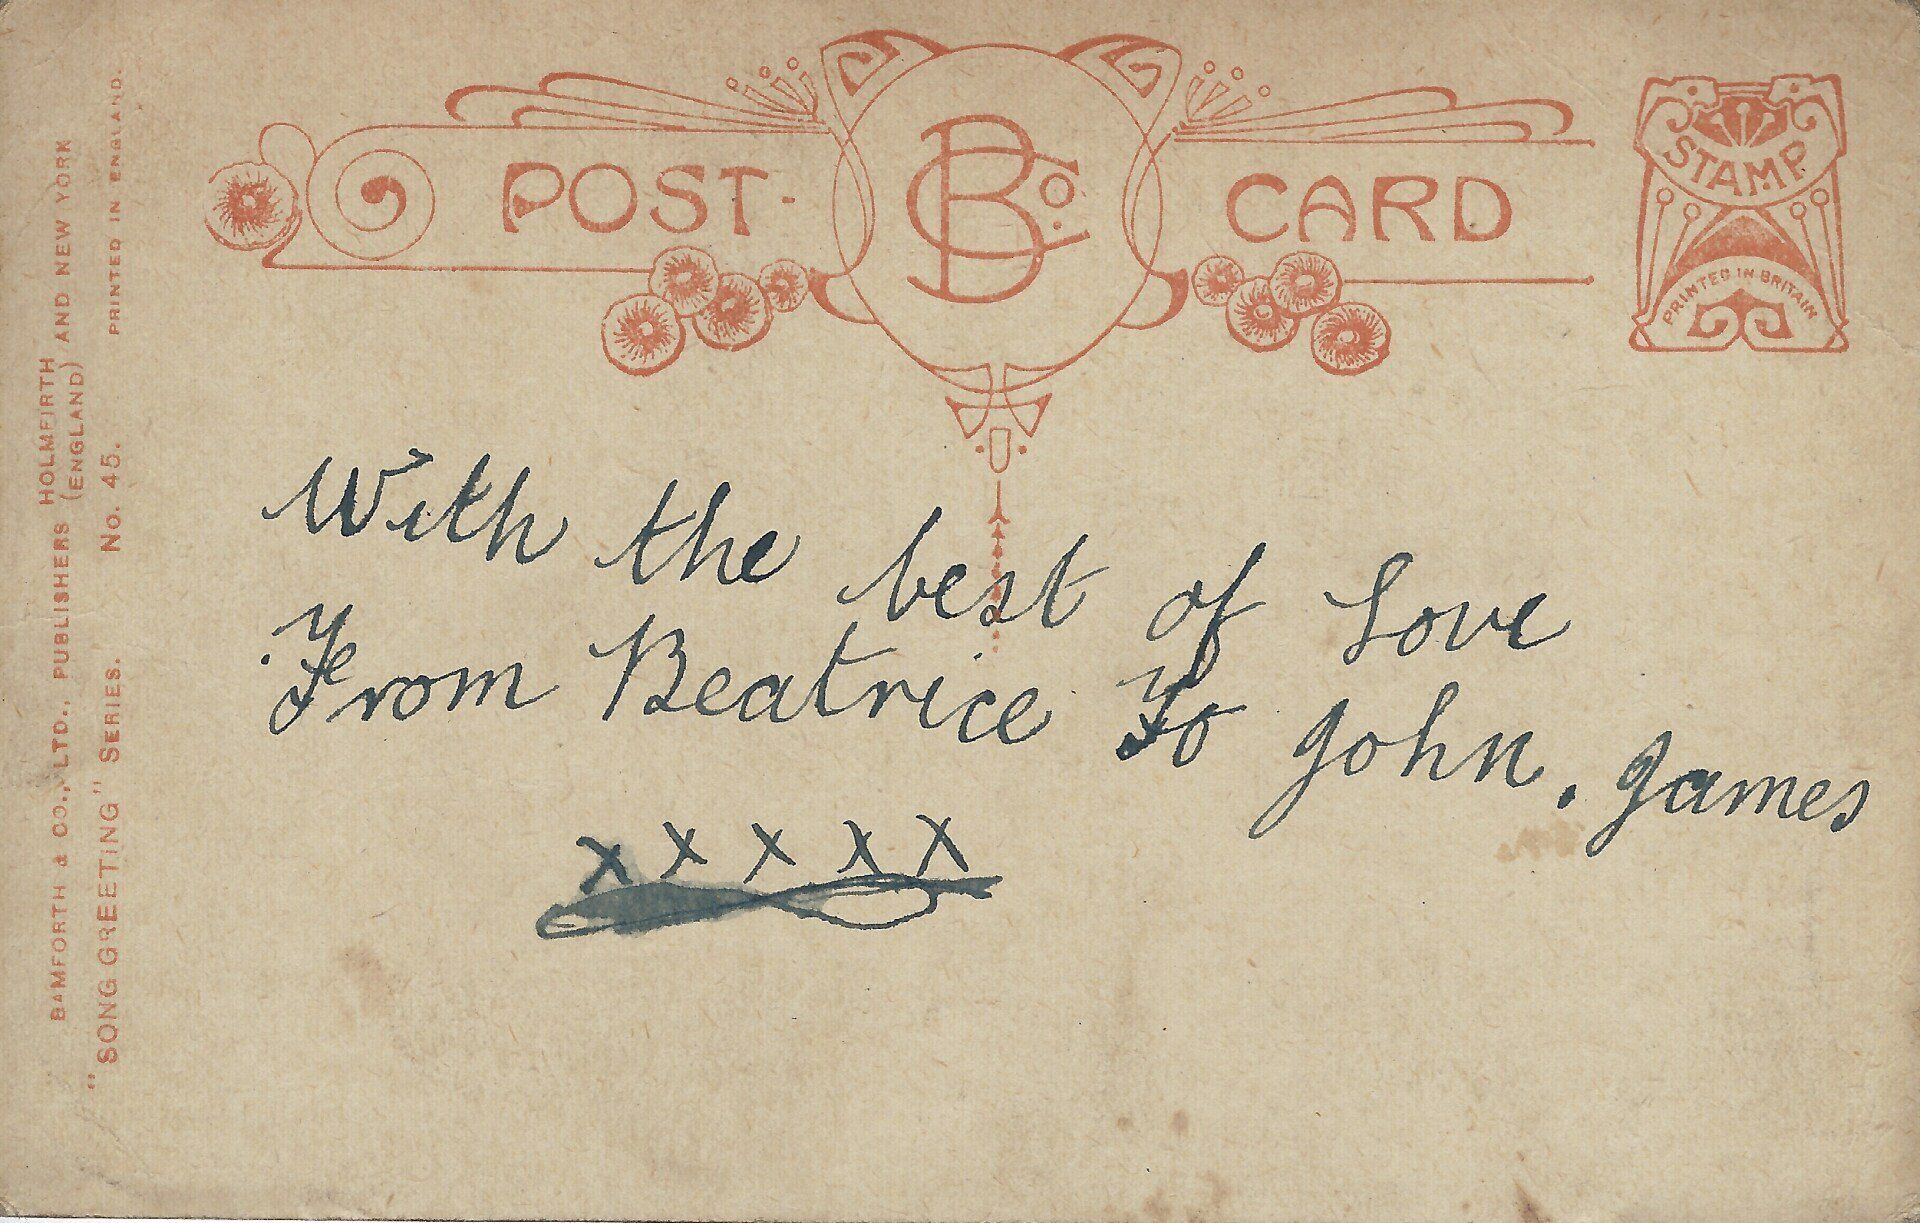 POST CARD
B Co.
STAMP
PRINTED IN BRITAIN
With the best of Love
From Beatrice To John. James
x x x x x
BAMFORTH & CO., LTD., PUBLISHERS HOLMFIRTH (ENGLAND) AND NEW YORK
"SONG GREETING" SERIES. No. 45. PRINTED IN ENGLAND.